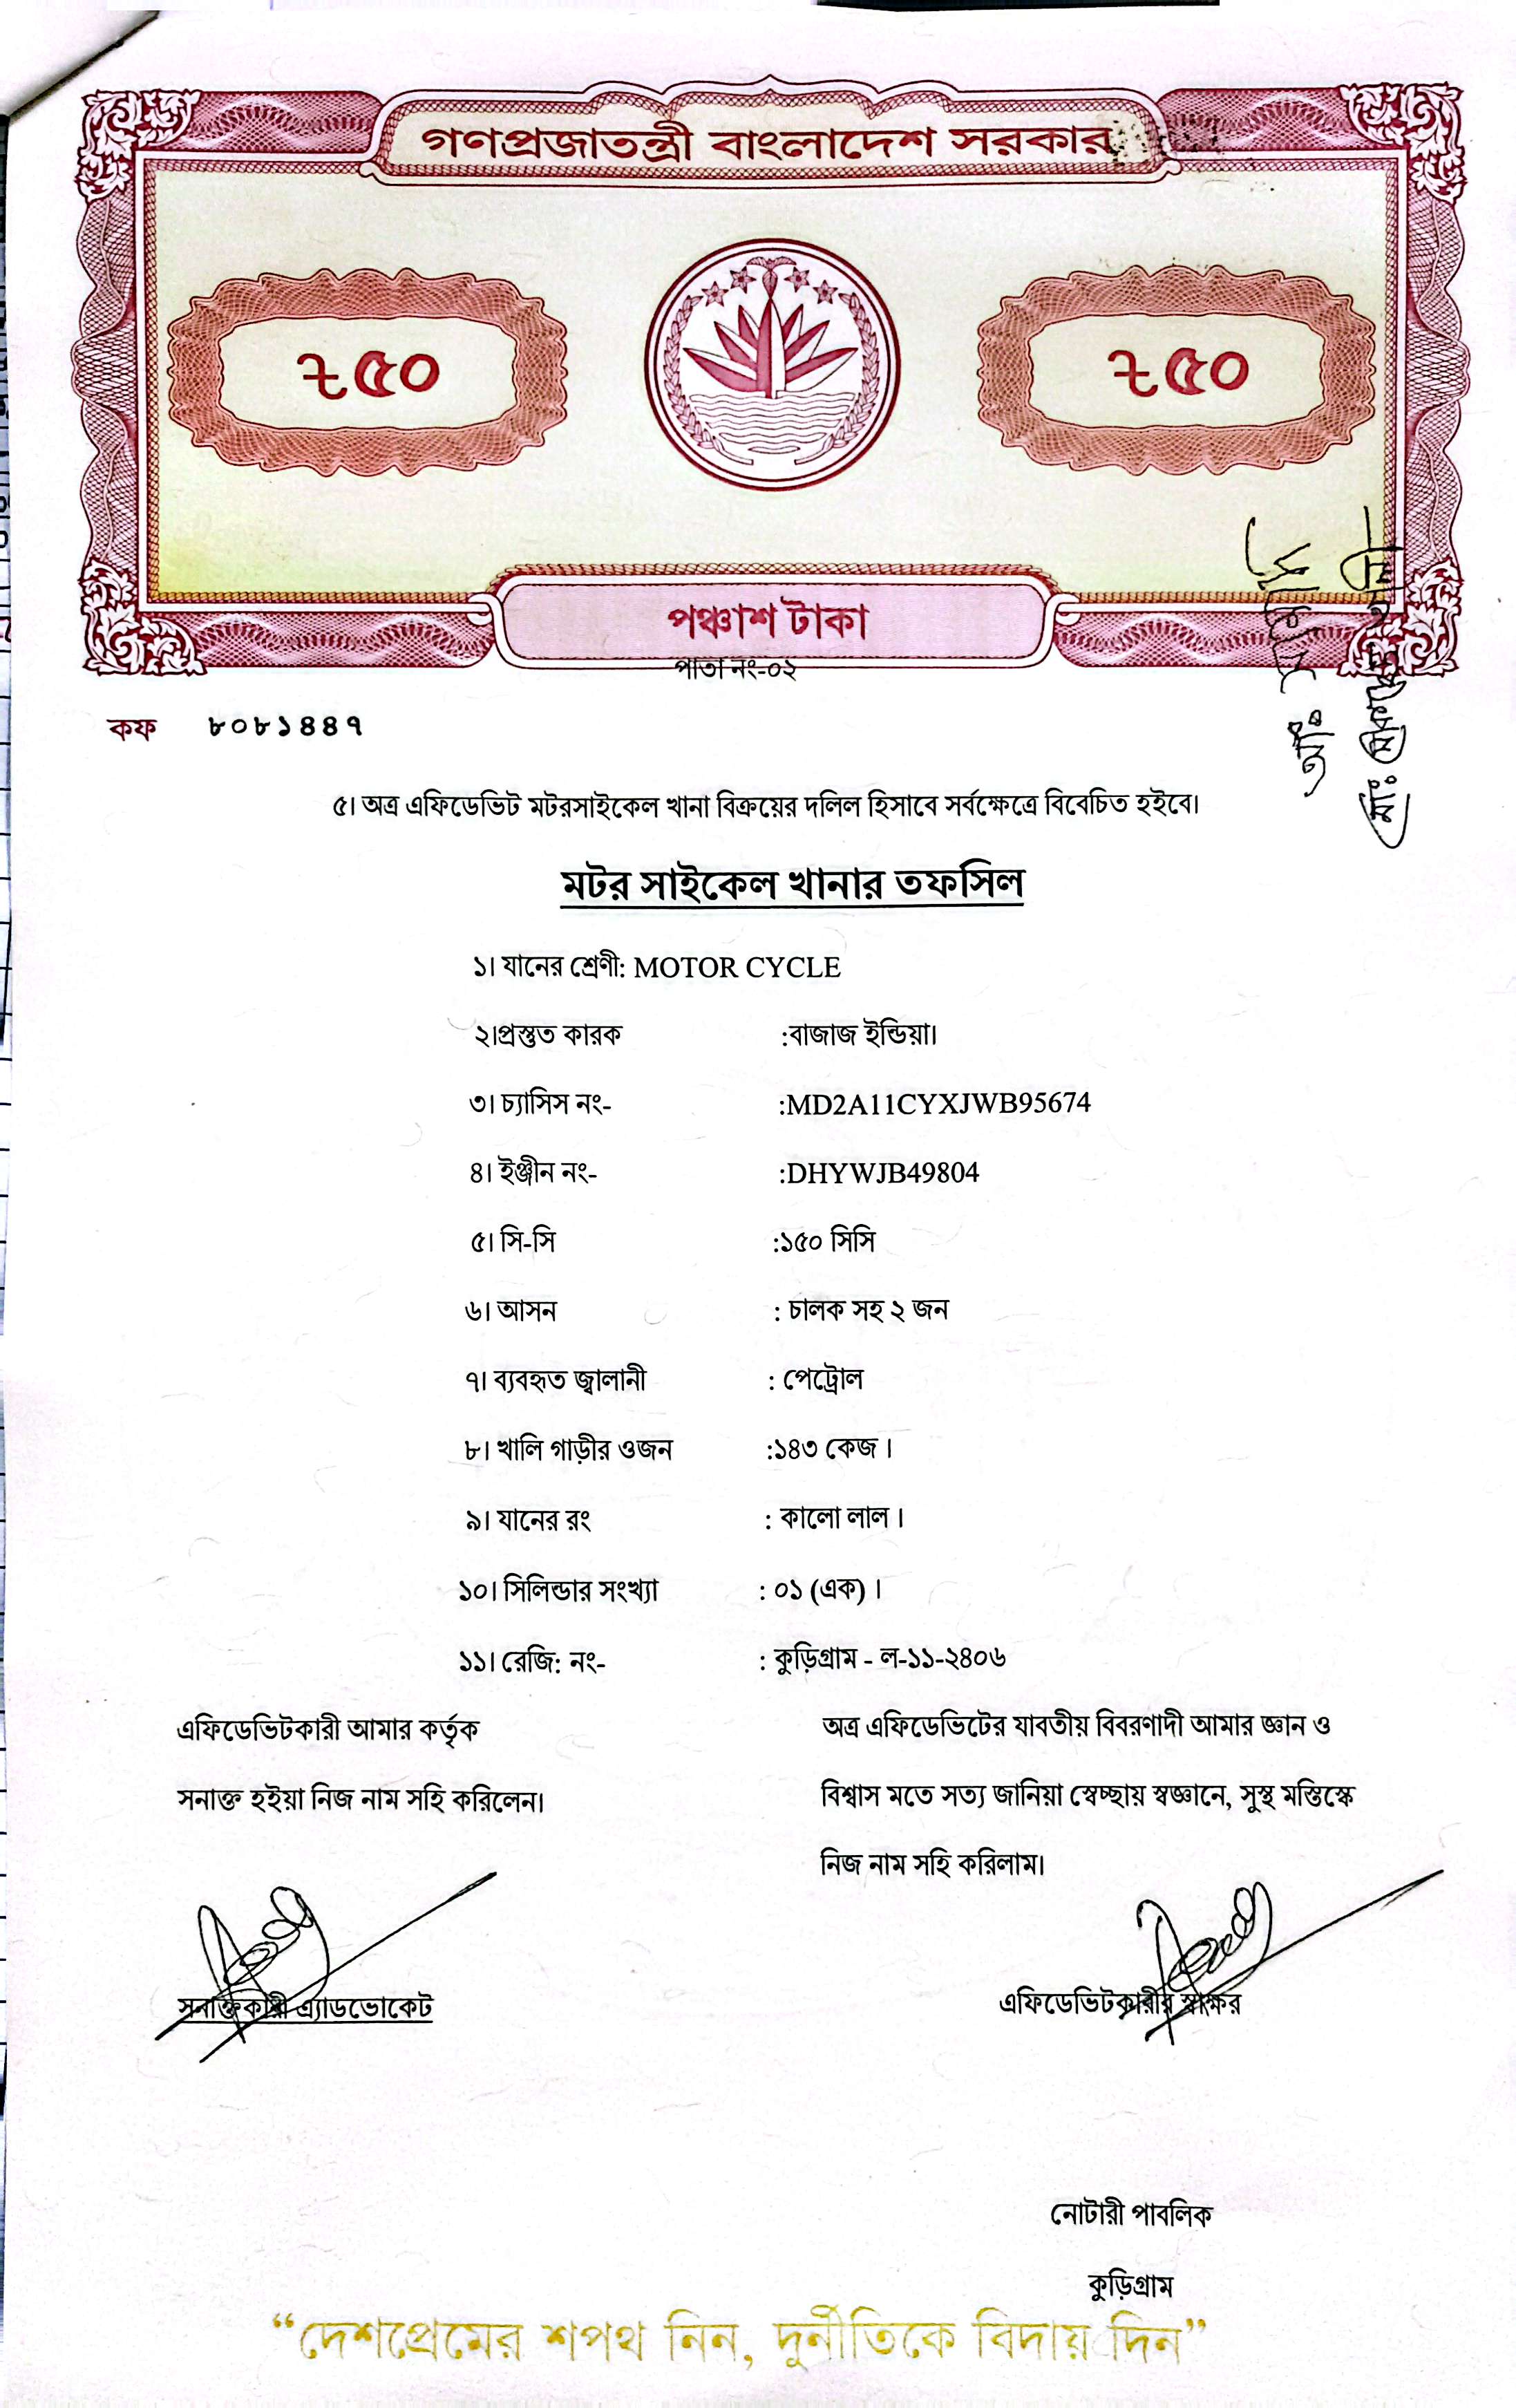 গণপ্রজাতন্ত্রী বাংলাদেশ সরকার
৳৫০
৳৫০
পঞ্চাশ টাকা
পাতা নং-০২
কফ ৮০৮১৪৪৭
৫। অত্র এফিডেভিট মটরসাইকেল খানা বিক্রয়ের দলিল হিসাবে সর্বক্ষেত্রে বিবেচিত হইবে।
মটর সাইকেল খানার তফসিল
১। যানের শ্রেণী: MOTOR CYCLE
২।প্রস্তুত কারক :বাজাজ ইন্ডিয়া।
৩। চ্যাসিস নং- :MD2A11CYXJWB95674
৪। ইঞ্জীন নং- :DHYWJB49804
৫। সি-সি :১৫০ সিসি
৬। আসন : চালক সহ ২ জন
৭। ব্যবহৃত জ্বালানী : পেট্রোল
৮। খালি গাড়ীর ওজন :১৪৩ কেজ ।
৯। যানের রং : কালো লাল ।
১০। সিলিন্ডার সংখ্যা : ০১ (এক) ।
১১। রেজি: নং- : কুড়িগ্রাম - ল-১১-২৪০৬
এফিডেভিটকারী আমার কর্তৃক
সনাক্ত হইয়া নিজ নাম সহি করিলেন।
অত্র এফিডেভিটের যাবতীয় বিবরণাদী আমার জ্ঞান ও
বিশ্বাস মতে সত্য জানিয়া স্বেচ্ছায় স্বজ্ঞানে, সুস্থ মস্তিস্কে
নিজ নাম সহি করিলাম।
সনাক্তকারী এ্যাডভোকেট
এফিডেভিটকারীর স্বাক্ষর
নোটারী পাবলিক
কুড়িগ্রাম
“দেশপ্রেমের শপথ নিন, দুর্নীতিকে বিদায় দিন”